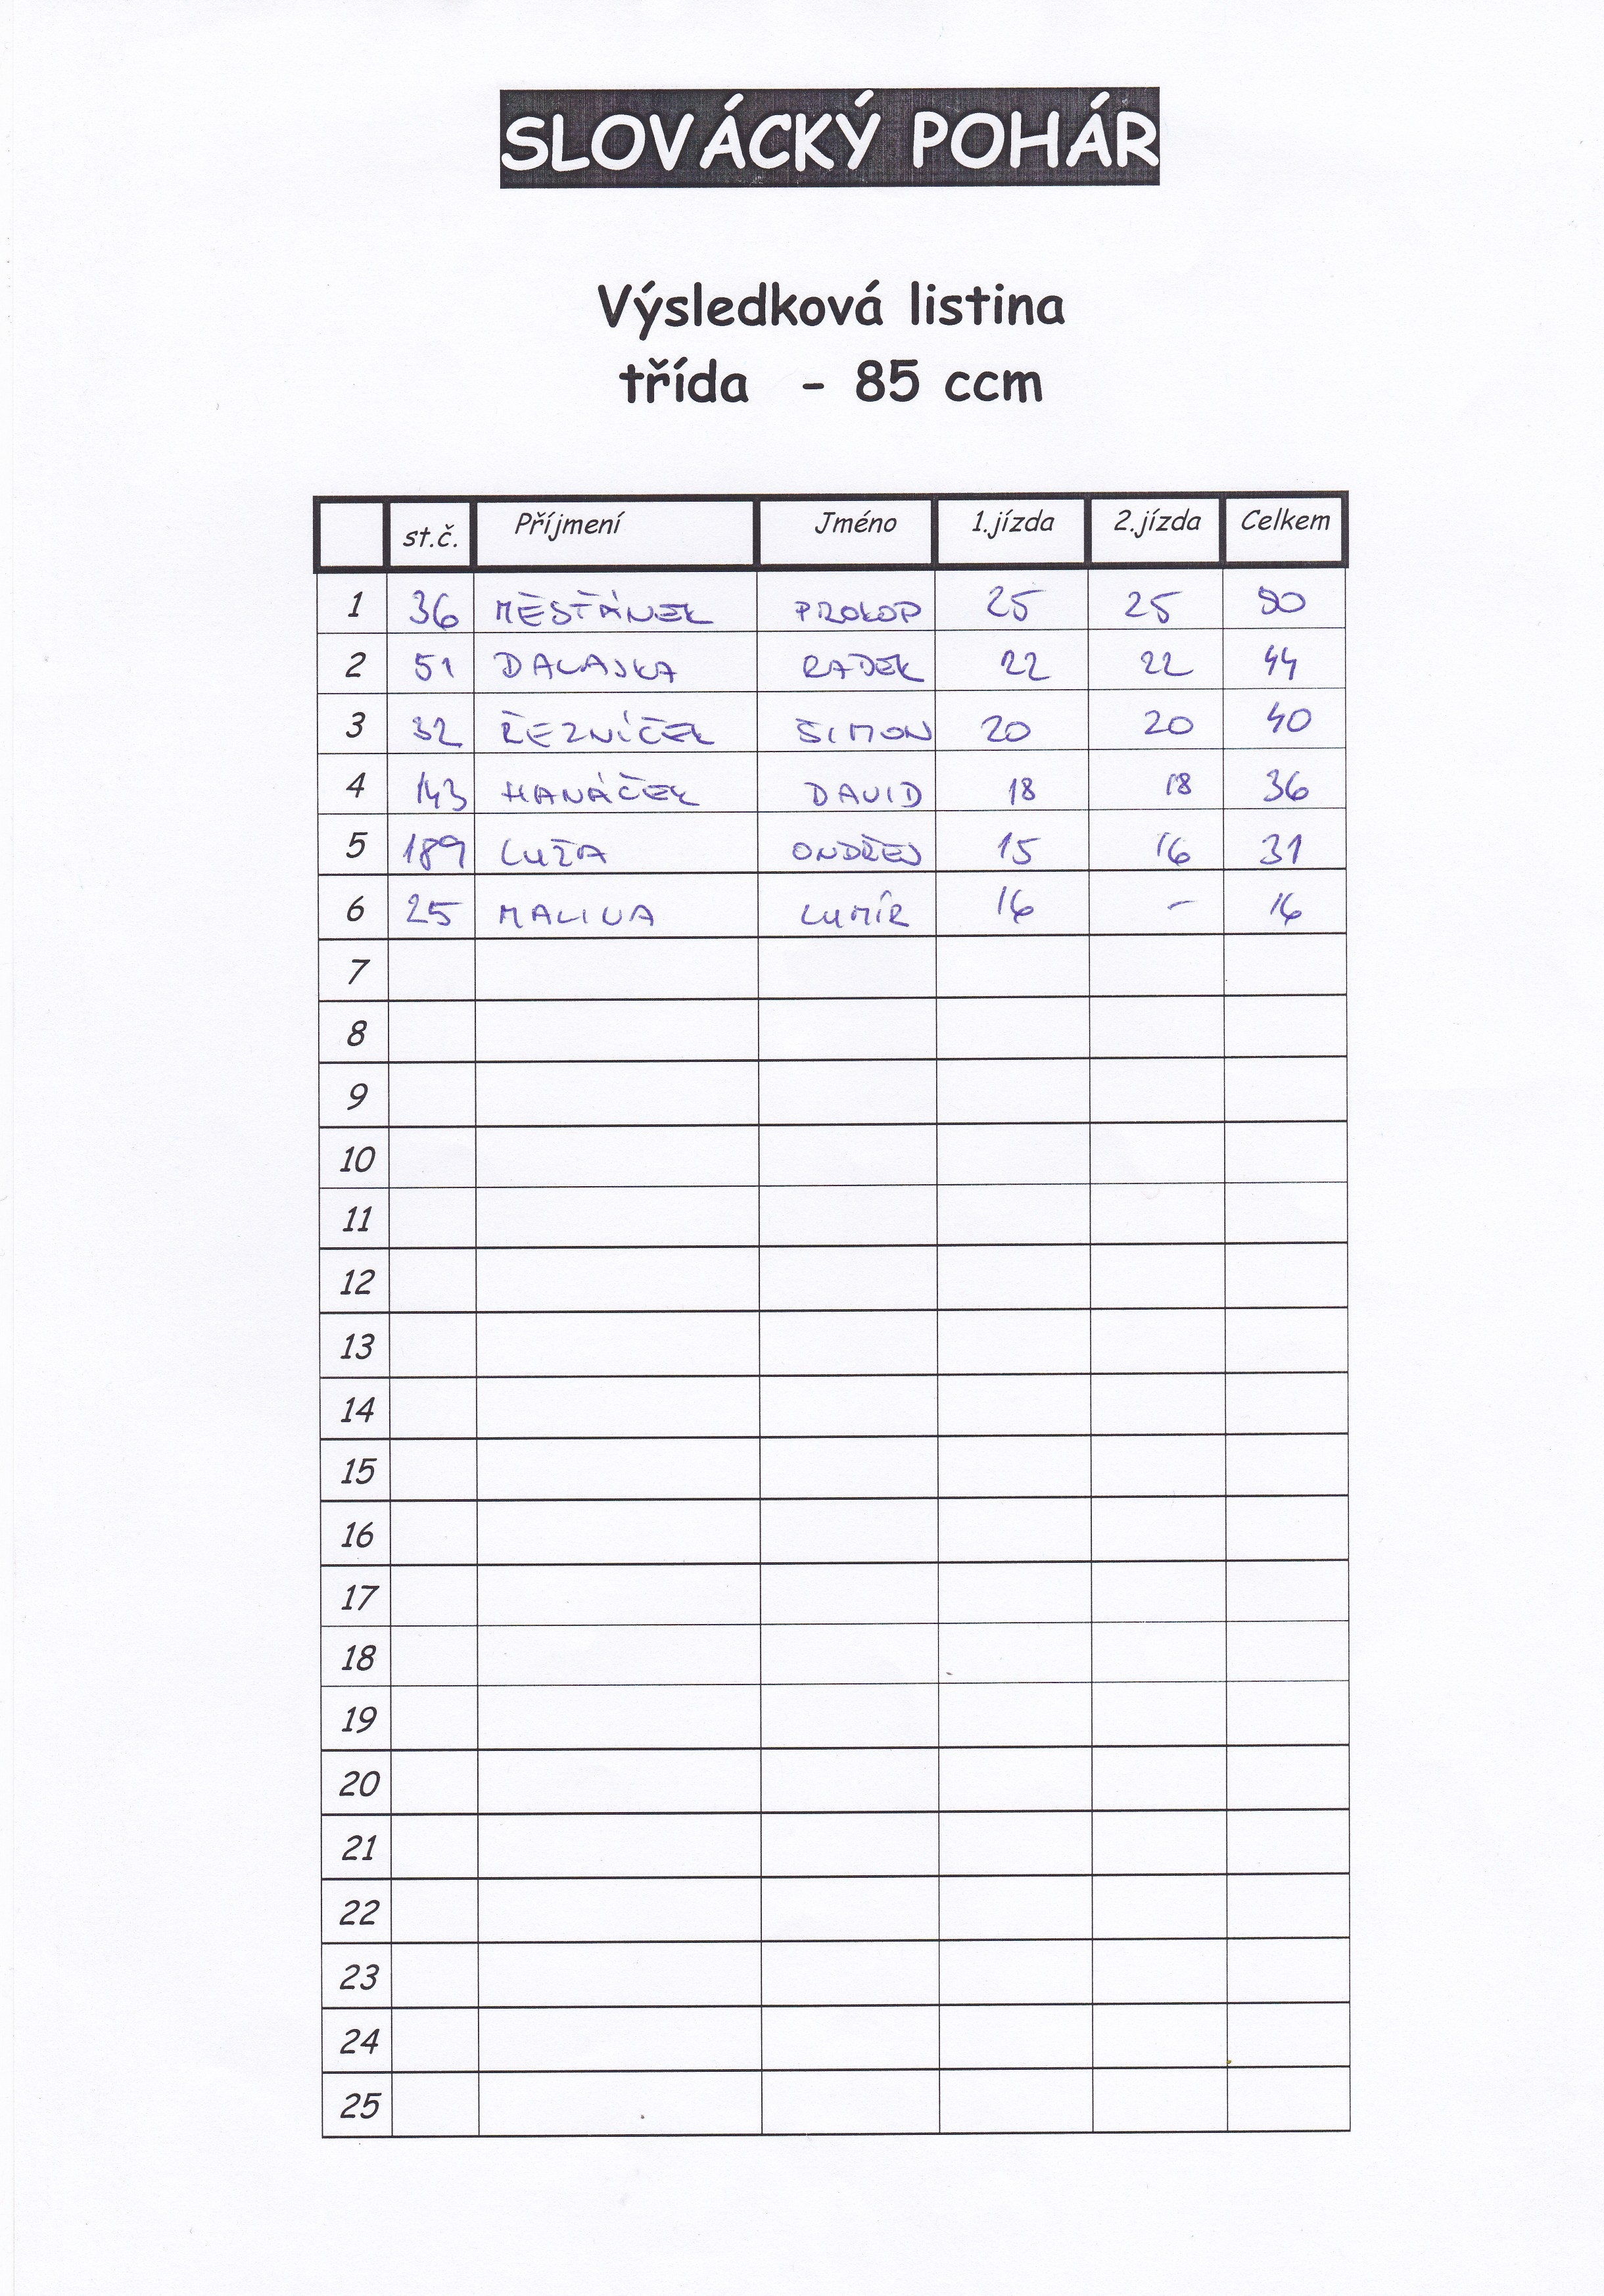 SLOVÁCKÝ POHÁR
Výsledková listina
třída - 85 ccm
st.č. Příjmení Jméno 1.jízda 2.jízda Celkem
1 36 MĚŠŤÁNEK PROKOP 25 25 50
2 51 DALAJKA RADEK 22 22 44
3 32 ŘEZNÍČEK ŠIMON 20 20 40
4 143 HANÁČEK DAVID 18 18 36
5 189 LUŽA ONDŘEJ 15 16 31
6 25 MALINA LUMÍR 16 - 16
7
8
9
10
11
12
13
14
15
16
17
18
19
20
21
22
23
24
25